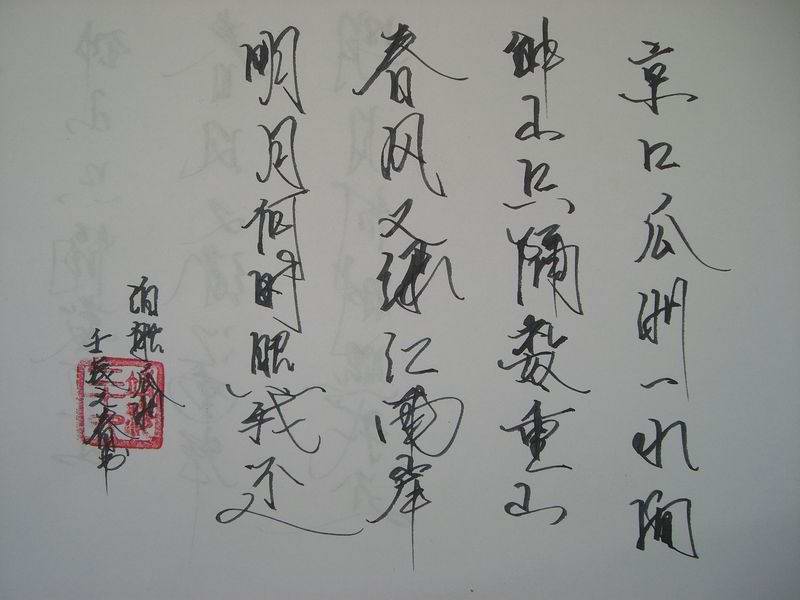 京口瓜洲一水间
钟山只隔数重山
春风又绿江南岸
明月何时照我还
泊船瓜洲
壬辰 春书